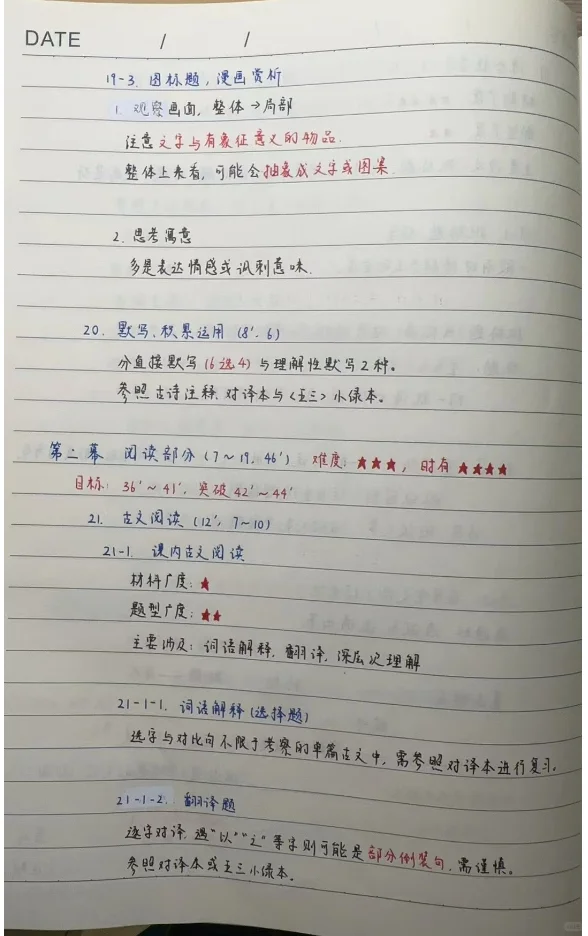 DATE / /
19-3. 图标题,漫画赏析
1. 观察画面,整体→局部
注意文字与有象征意义的物品.
整体上来看,可能会抽象成文字或图案.
2. 思考寓意
多是表达情感或讽刺意味.
20. 默写、积累运用 (8', 6)
分直接默写(6选4)与理解性默写2种。
参照古诗注释、对译本与《王三》小绿本。
第二幕 阅读部分 (7~19, 46') 难度:★★★,时有★★★★
目标:36'~41',突破42'~44'
21. 古文阅读 (12', 7~10)
21-1. 课内古文阅读
材料广度:★
题型广度:★★
主要涉及:词语解释,翻译,深层次理解
21-1-1. 词语解释(选择题)
选字与对比句不限于考察的单篇古文中,需参照对译本进行复习.
21-1-2. 翻译题
逐字对译,遇"以""之"等字则可能是部分倒装句,需谨慎。
参照对译本或王三小绿本.